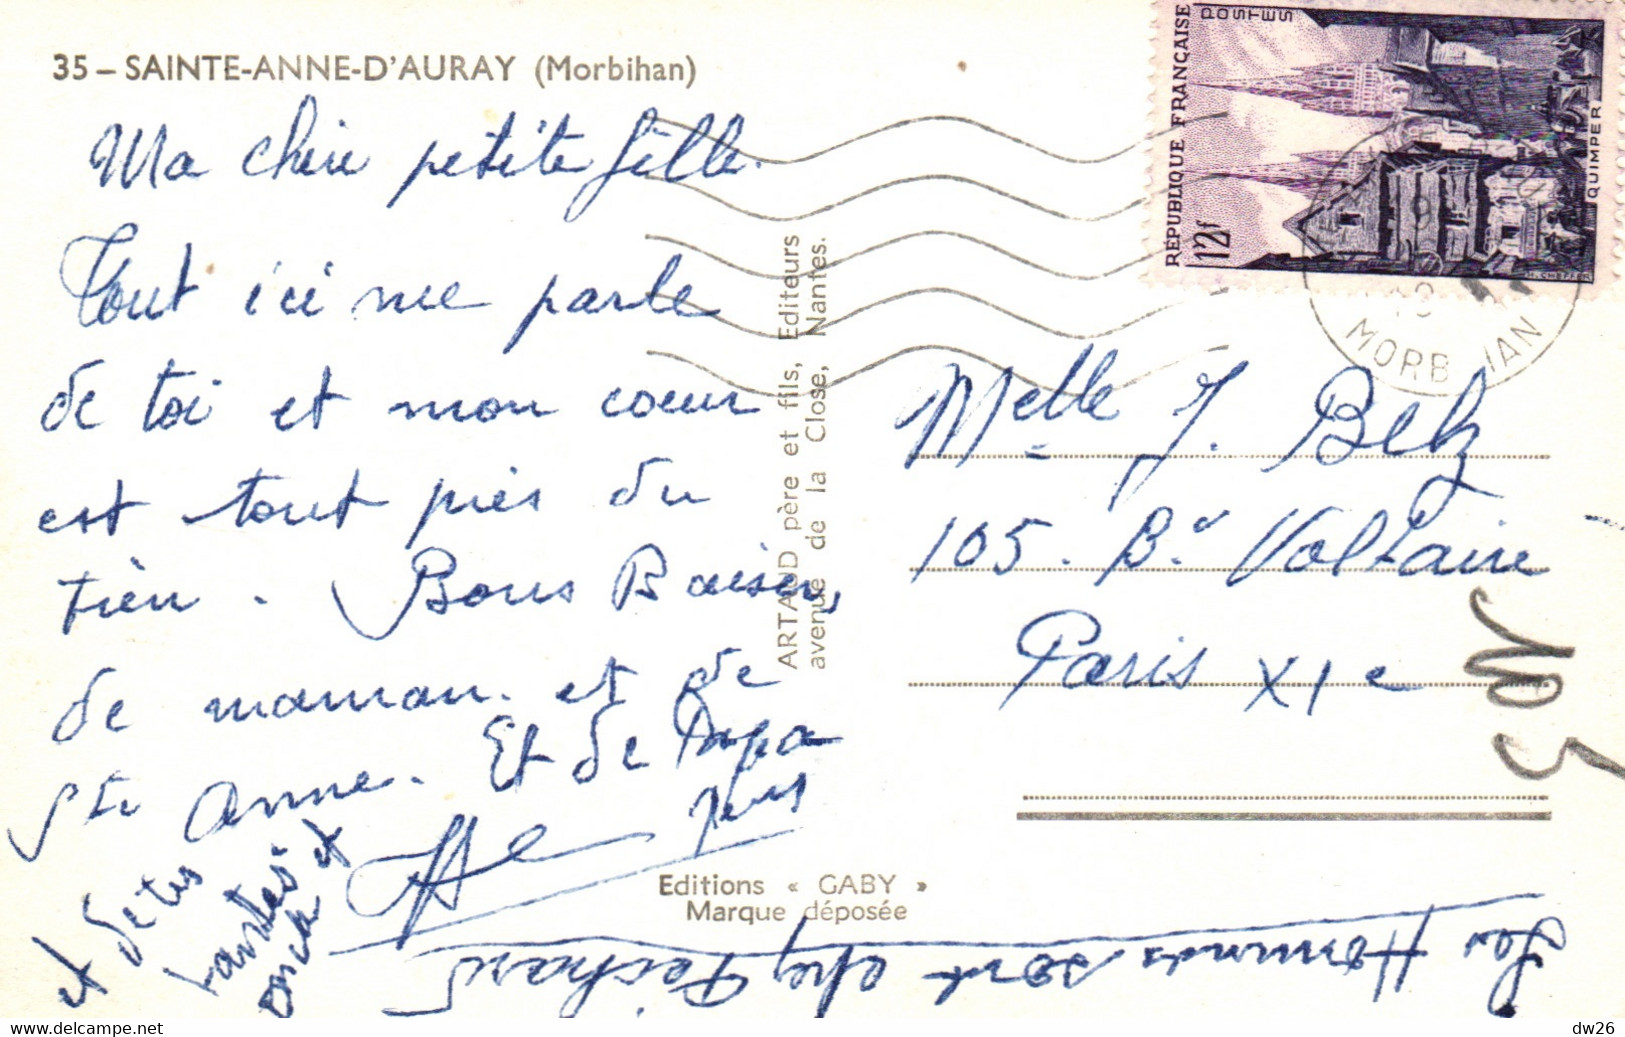 35 – SAINTE-ANNE-D'AURAY (Morbihan)
Ma chère petite fille.
Tout ici me parle
de toi et mon coeur
est tout près du
tien. Bons Baisers,
de maman. et de
Ste Anne. Et de Papa
et de tes
tantes et
oncle
ARTAUD père et fils, Editeurs
avenue de la Close, Nantes.
Editions « GABY »
Marque déposée
RÉPUBLIQUE FRANÇAISE
POSTES
12F
QUIMPER
H. CHEFFER
MORBIHAN
Melle J. Belz
105. Bd Voltaire
Paris XIe
105
Les sont chez Peichard
www.delcampe.net
dw26